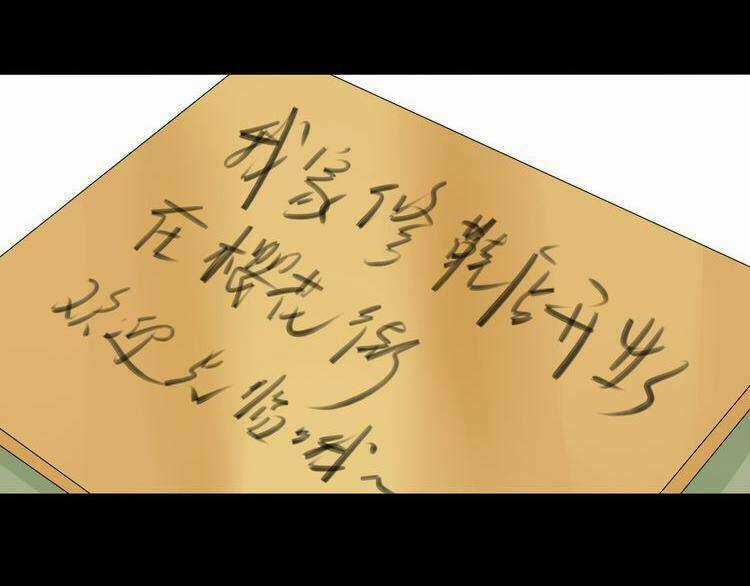 我家修鞋店开业
在樱花街
欢迎光临。我～